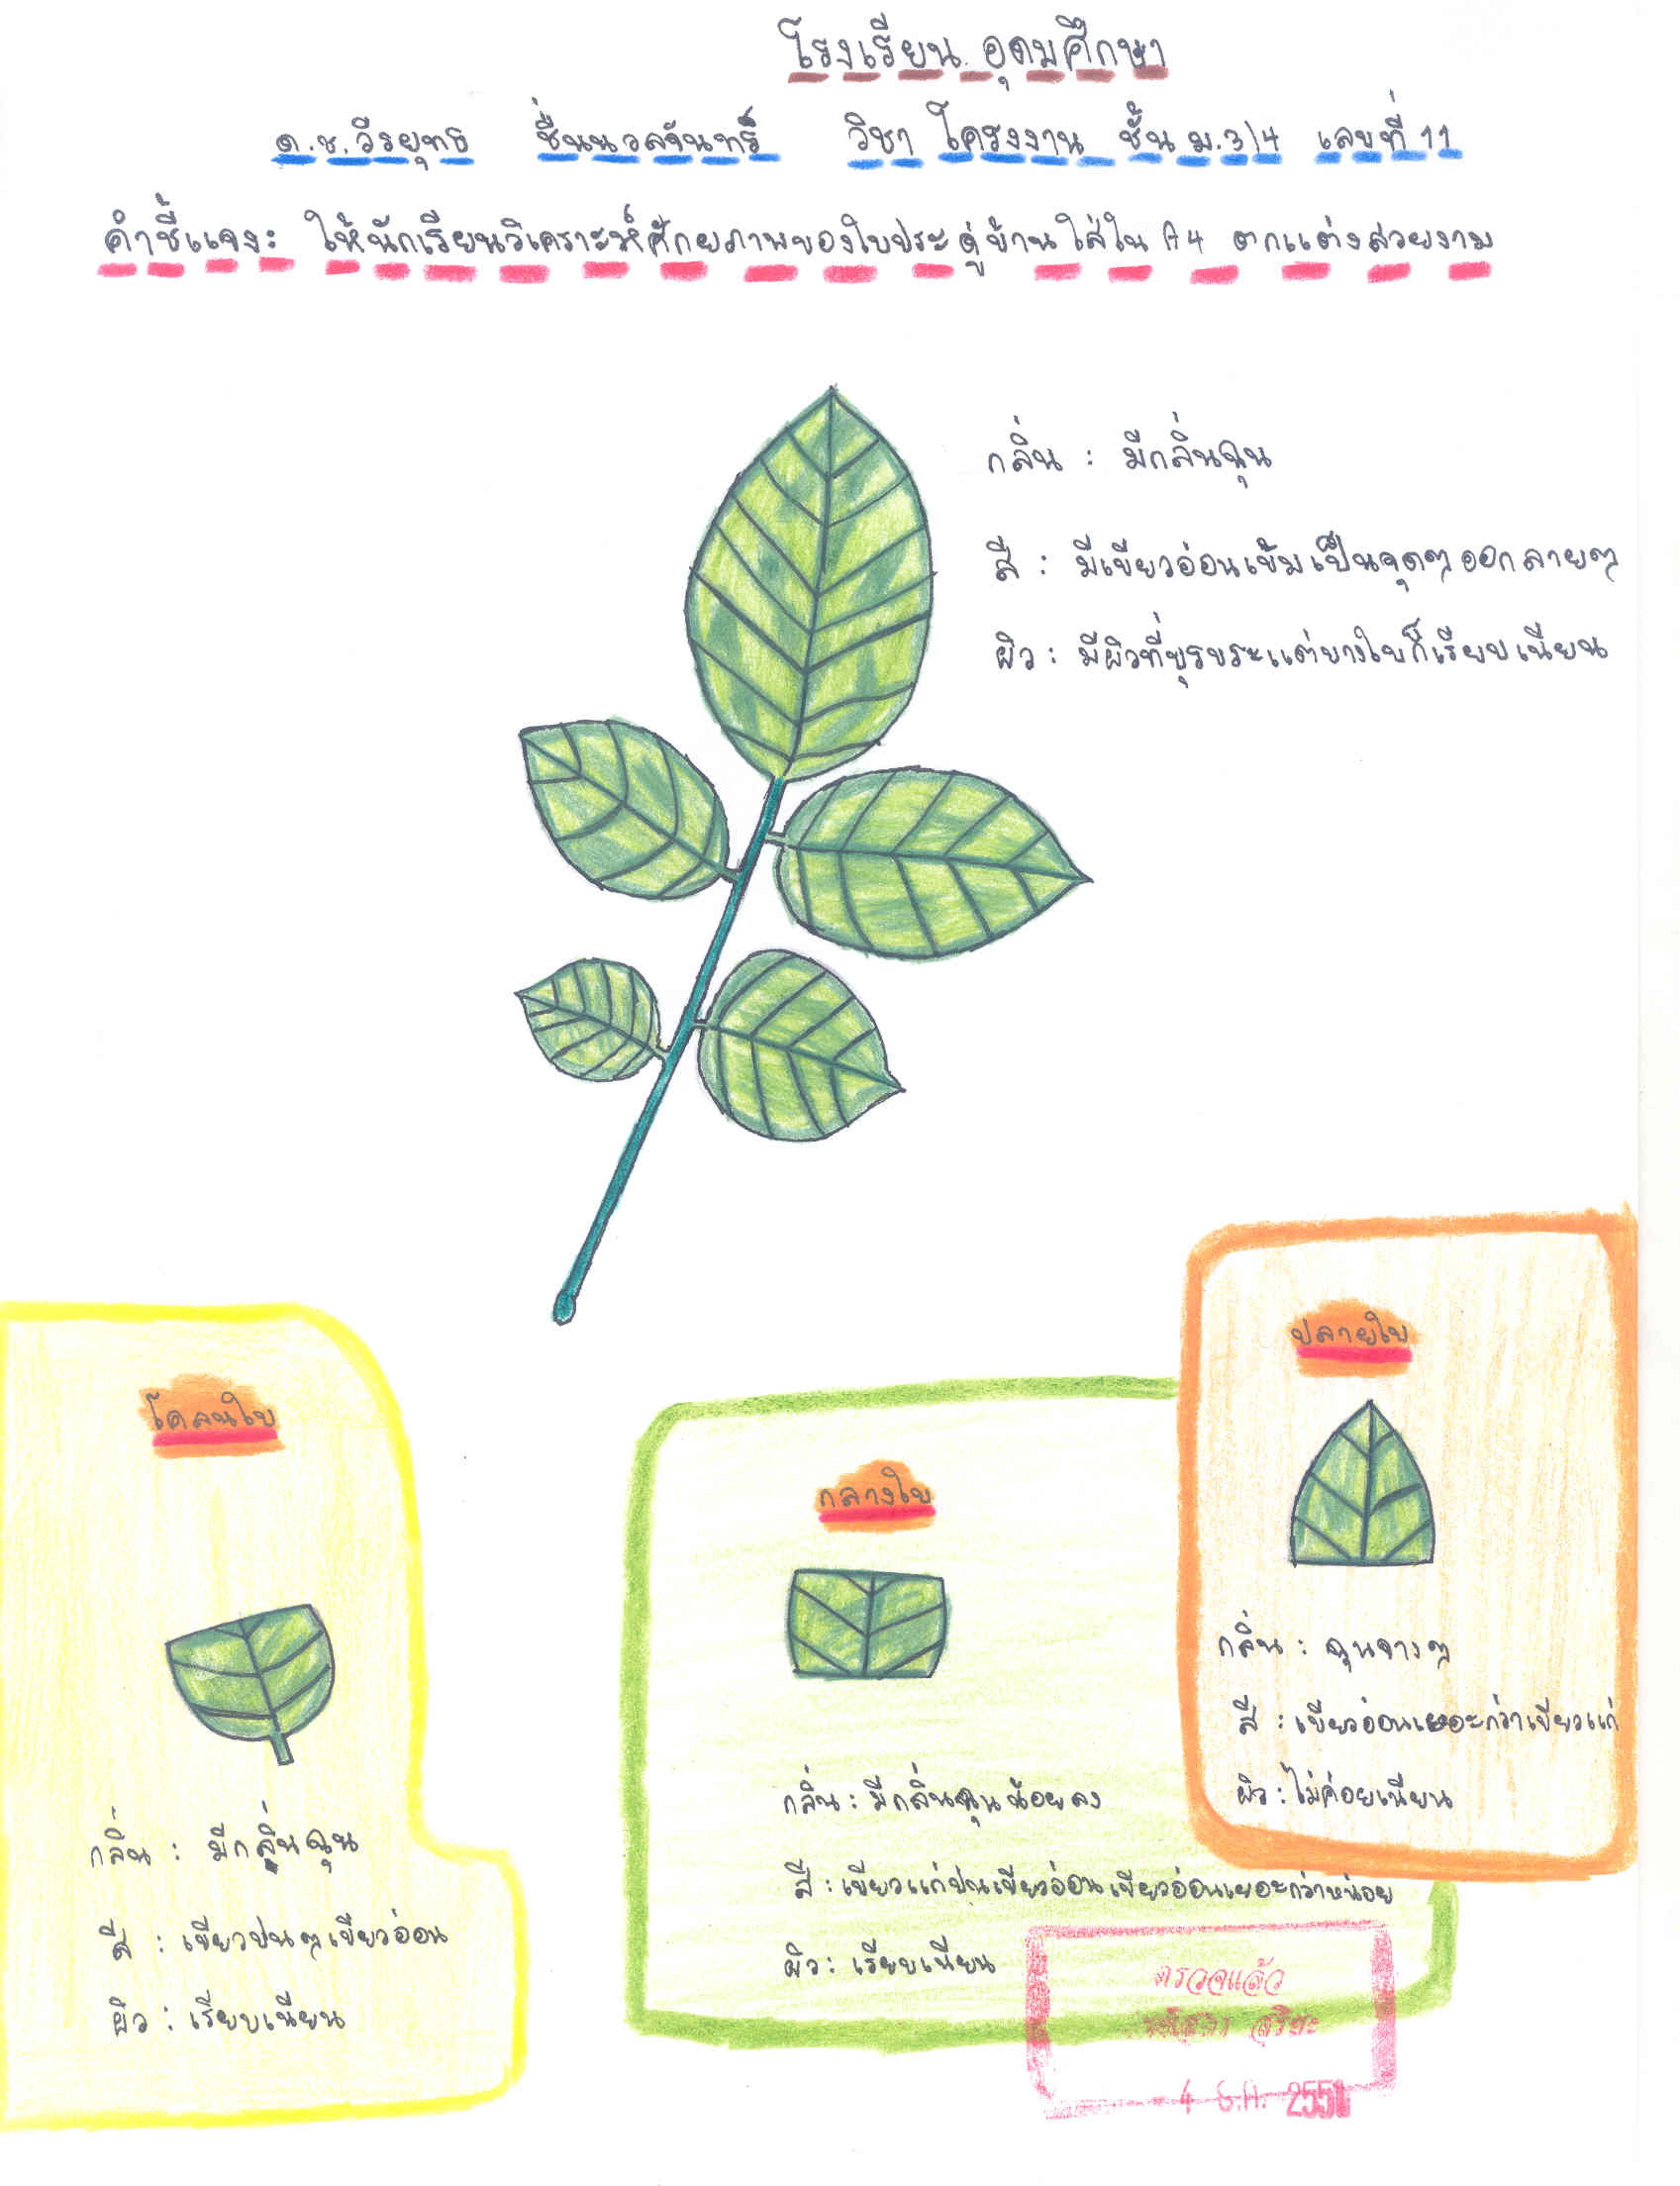 โรงเรียน อุดมศึกษา
ด.ช.วีรยุทธ ชื่นนวลจันทร์ วิชา โครงงาน ชั้น ม.3/4 เลขที่ 11
คำชี้แจง: ให้นักเรียนวิเคราะห์ศักยภาพของใบประดู่บ้าน ใส่ใน A4 ตกแต่งสวยงาม
กลิ่น : มีกลิ่นฉุน
สี : มีเขียวอ่อนเข้มเป็นจุดๆออกลายๆ
ผิว : มีผิวที่ขุรขระแต่บางใบก็เรียบเนียน
โคลนใบ
กลิ่น : มีกลิ่นฉุน
สี : เขียวปนๆเขียวอ่อน
ผิว : เรียบเนียน
กลางใบ
กลิ่น : มีกลิ่นฉุนน้อยลง
สี : เขียวแก่ปนเขียวอ่อนเขียวอ่อนเยอะกว่าหน่อย
ผิว : เรียบเนียน
ปลายใบ
กลิ่น : ฉุนจางๆ
สี : เขียวอ่อนเยอะกว่าเขียวแก่
ผิว : ไม่ค่อยเนียน
ตรวจแล้ว
4 ธ.ค. 2551